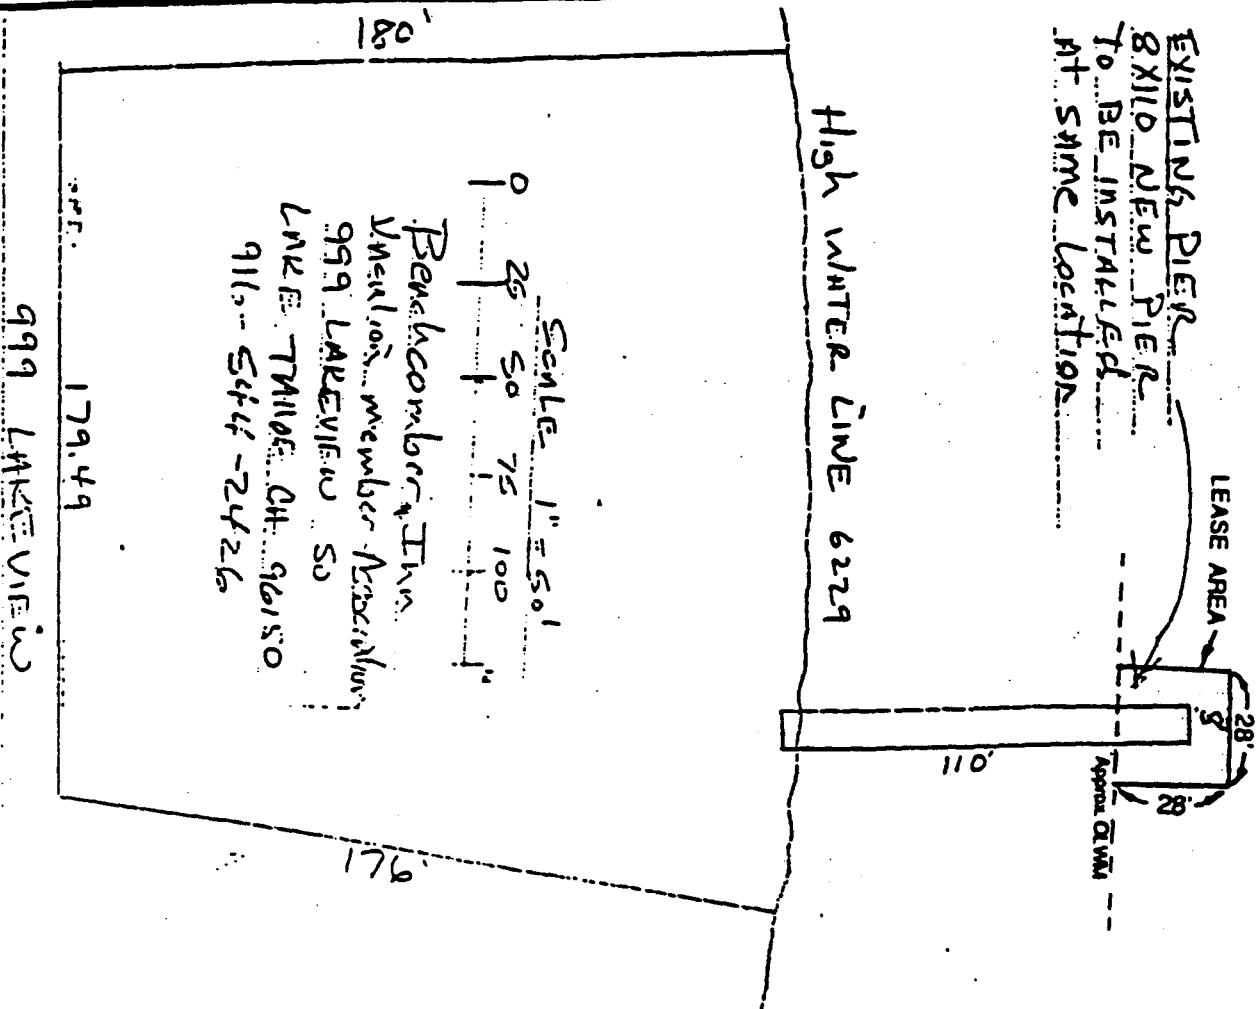 EXISTING PIER
8X110 NEW PIER
To BE INSTALLEd
At SAME LocAtIon
LEASE AREA
28'
8'
28'
Approx OLWM
110'
High WATER LiNE 6229
180'
SCALE 1" = 50'
0 25 50 75 100
Beachcomber Inn
Vacation member Association
999 LAKEVIEW SO
LAKE TAHOE CA 96150
916-544-2426
176'
179.49
999 LAKEVIEW